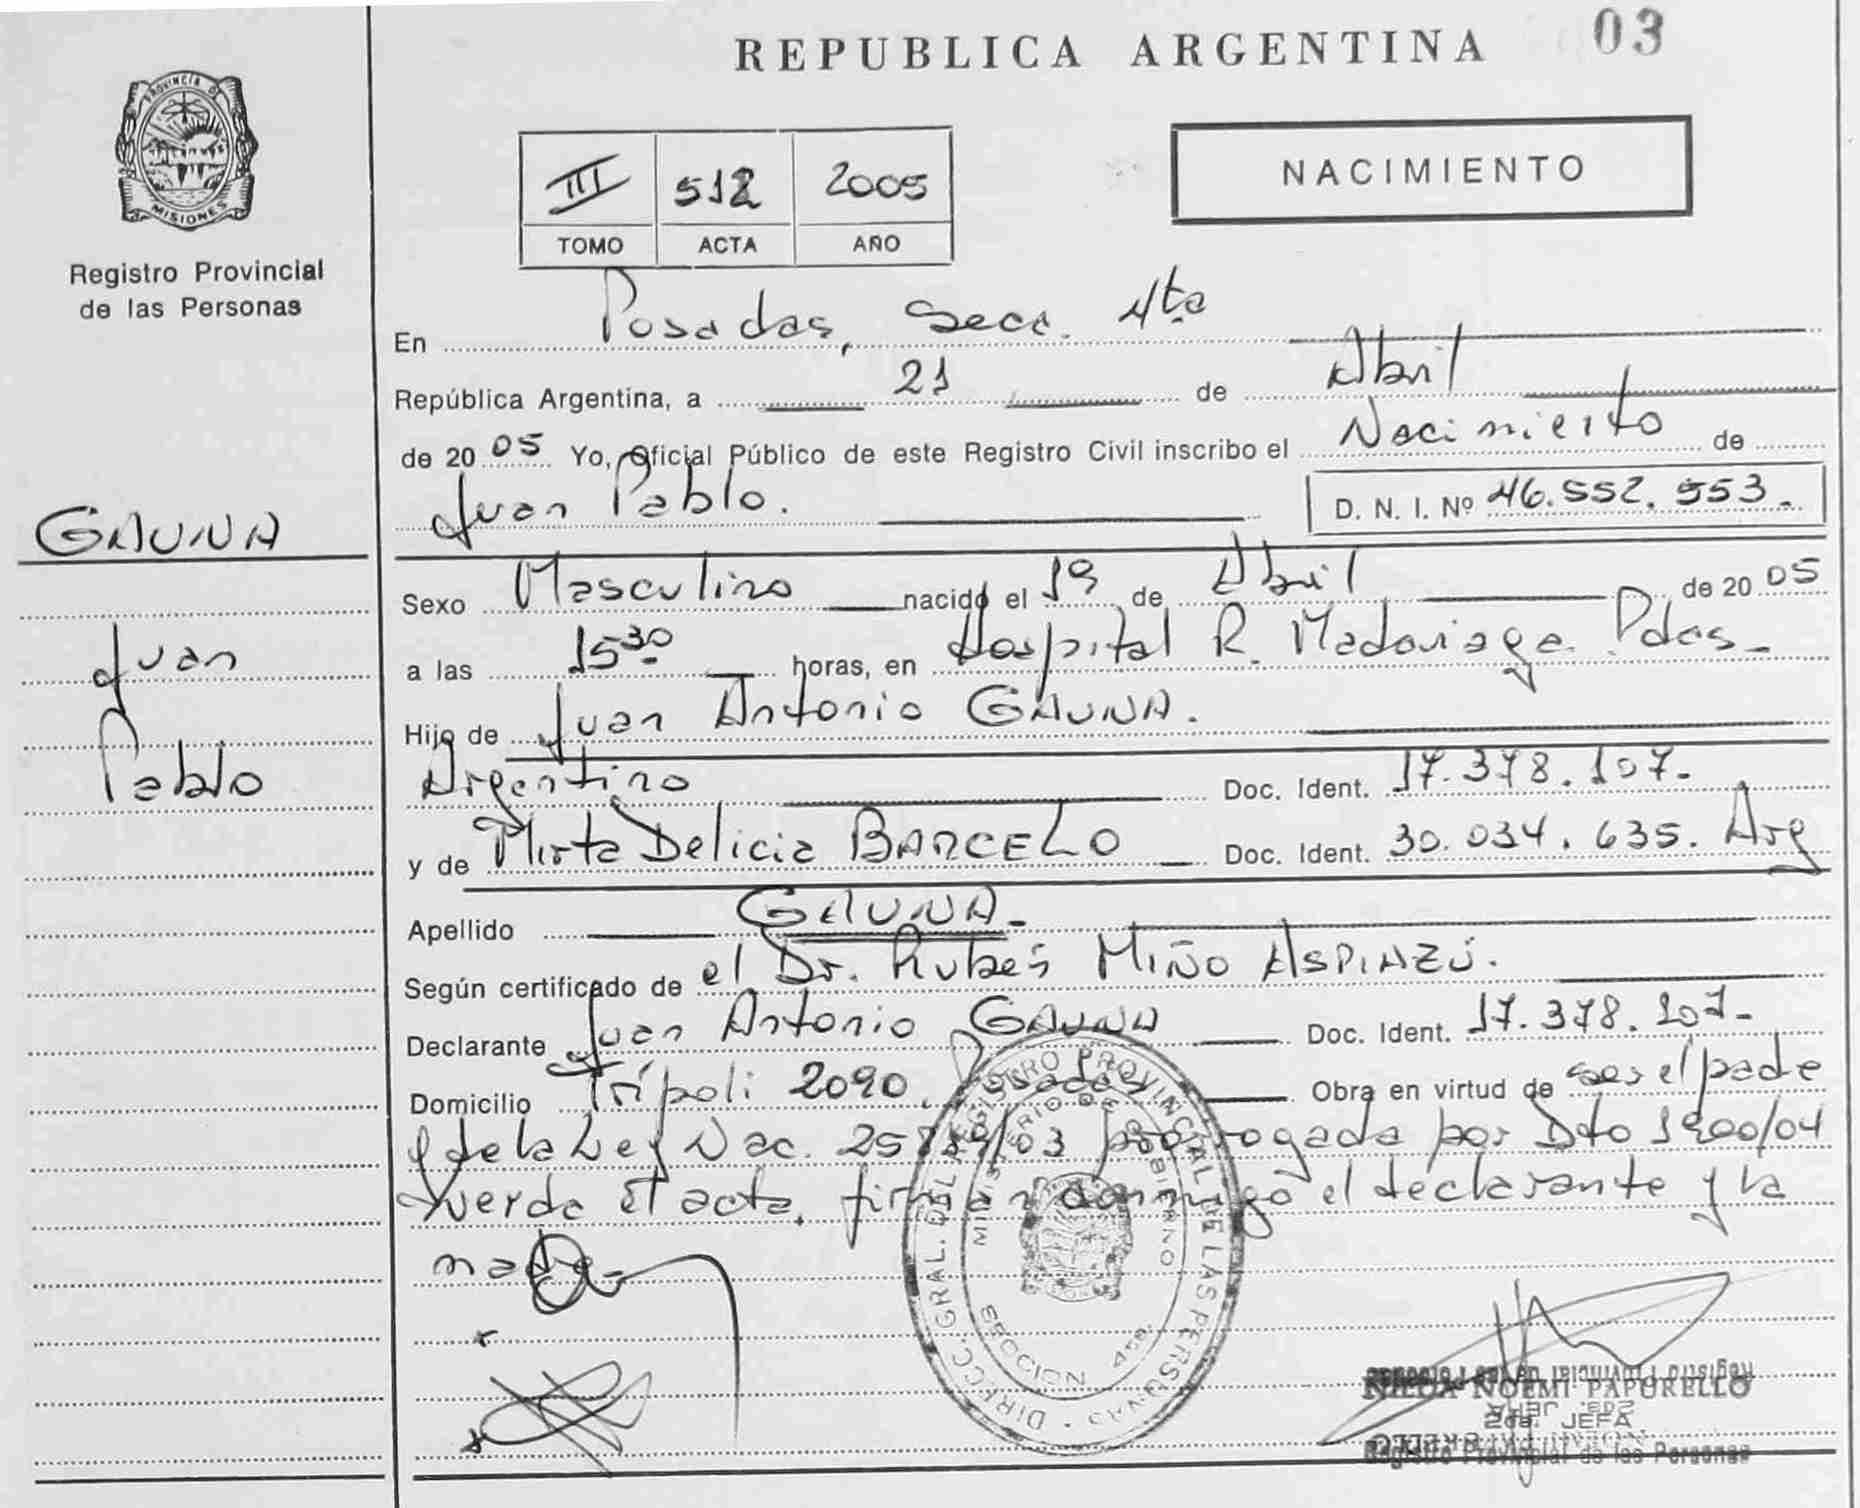 REPUBLICA ARGENTINA 03
PROVINCIA DE
MISIONES
Registro Provincial
de las Personas
NACIMIENTO
III 512 2005
TOMO ACTA AÑO
En Posadas, Secc. 4ta
República Argentina, a 21 de Abril
de 2005 Yo, Oficial Público de este Registro Civil inscribo el Nacimiento de
Juan Pablo. D. N. I. Nº 46.552.553.-
GAUNA
Juan
Pablo
Sexo Masculino nacido el 19 de Abril de 2005
a las 15 30 horas, en Hospital R. Madariaga. Pdas.-
Hijo de Juan Antonio GAUNA.
Argentino Doc. Ident. 17.378.107.-
y de Mirta Delicia BARCELO Doc. Ident. 30.034.635. Arg
Apellido GAUNA.-
Según certificado de el Dr. Ruben MIÑO ASPIAZÚ.
Declarante Juan Antonio GAUNA Doc. Ident. 17.378.107.-
Domicilio Trípoli 2090, Posadas Obra en virtud de ser el padre
y de la Ley Nac. 25819/03 prorrogada por Dto 1900/04
el acta, firman conmigo el declarante y la
madre.-
DIRECC. GRAL. DEL REGISTRO PROVINCIAL DE LAS PERSONAS
MINISTERIO DE GOBIERNO
SECCION 4ta.
NILDA NOEMI PAPURELLO
2da. JEFA
Registro Provincial de las Personas